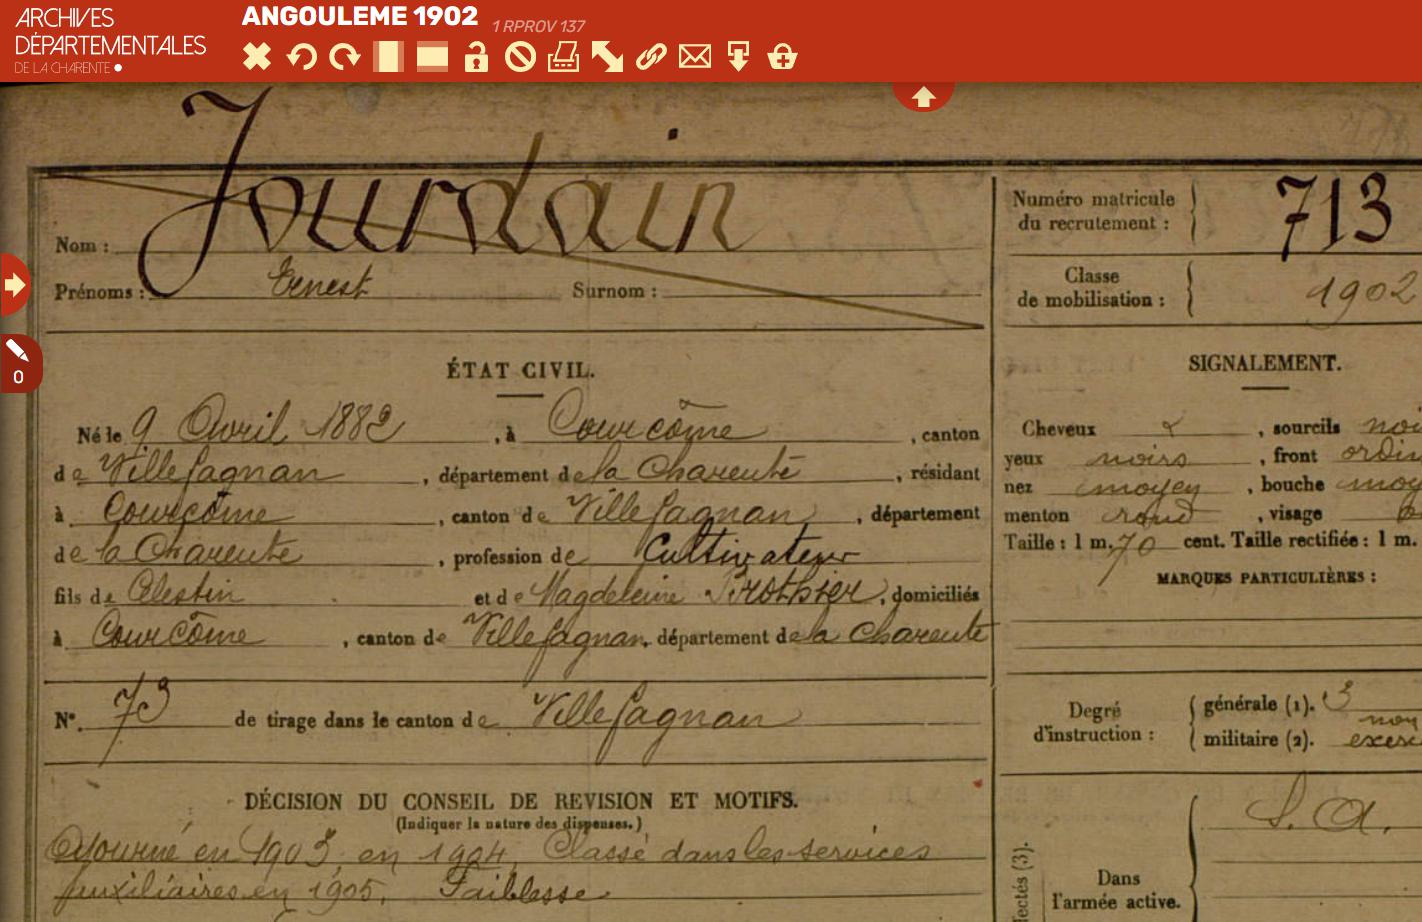 ARCHIVES
DÉPARTEMENTALES
DE LA CHARENTE
ANGOULEME 1902 1 RPROV 137
0
Jourdain
Nom :
Prénoms : Ernest Surnom :
Numéro matricule
du recrutement : 713
Classe
de mobilisation : 1902
ÉTAT CIVIL.
Né le 9 Avril 1882, à Courcôme, canton
de Villefagnan, département de la Charente, résidant
à Courcôme, canton de Villefagnan, département
de la Charente, profession de Cultivateur
fils de Célestin et de Magdeleine Prothier, domiciliés
à Courcôme, canton de Villefagnan, département de la Charente
N° 73 de tirage dans le canton de Villefagnan
DÉCISION DU CONSEIL DE REVISION ET MOTIFS.
(Indiquer la nature des dispenses.)
Ajourné en 1903, en 1904. Classé dans les services
auxiliaires en 1905. Faiblesse
SIGNALEMENT.
Cheveux &, sourcils noi
yeux noirs, front ordin
nez moyen, bouche moy
menton rond, visage
Taille : 1 m. 70 cent. Taille rectifiée : 1 m.
MARQUES PARTICULIÈRES :
Degré
d'instruction :
générale (1). 3
militaire (2). non
exerc
S. A.
Dans
l'armée active.
lectés (3).